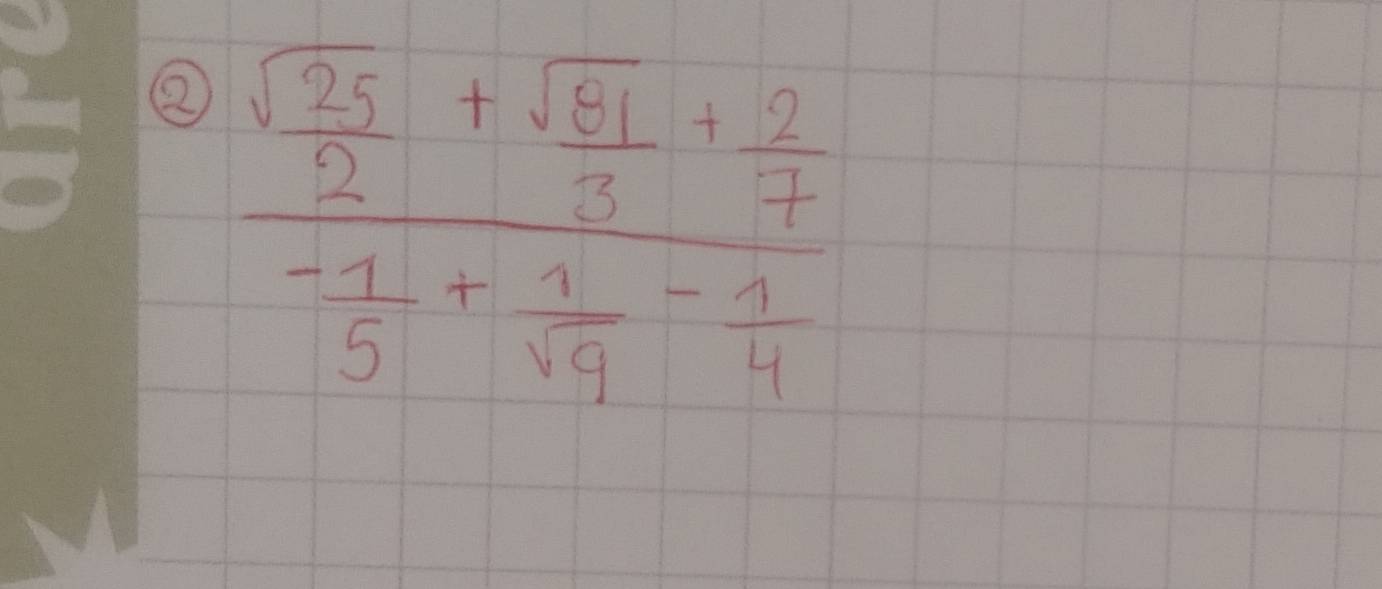 are
② √25/2 + √81/3 + 2/7
-1/5 + 1/√9 - 1/4